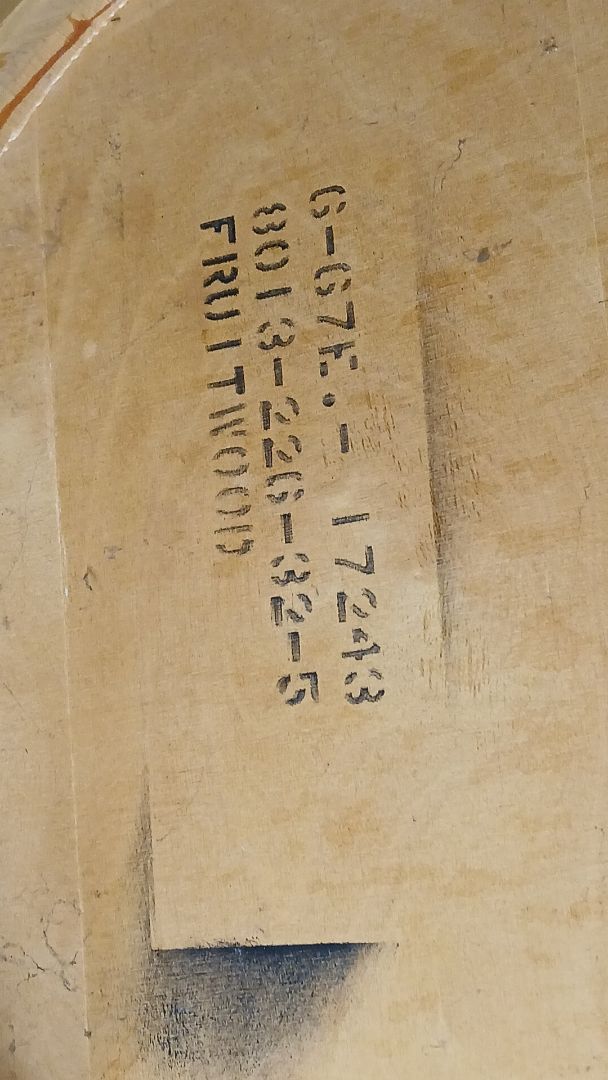 G-G7E.- 17243
8013-226-32-5
FRUITWOOD